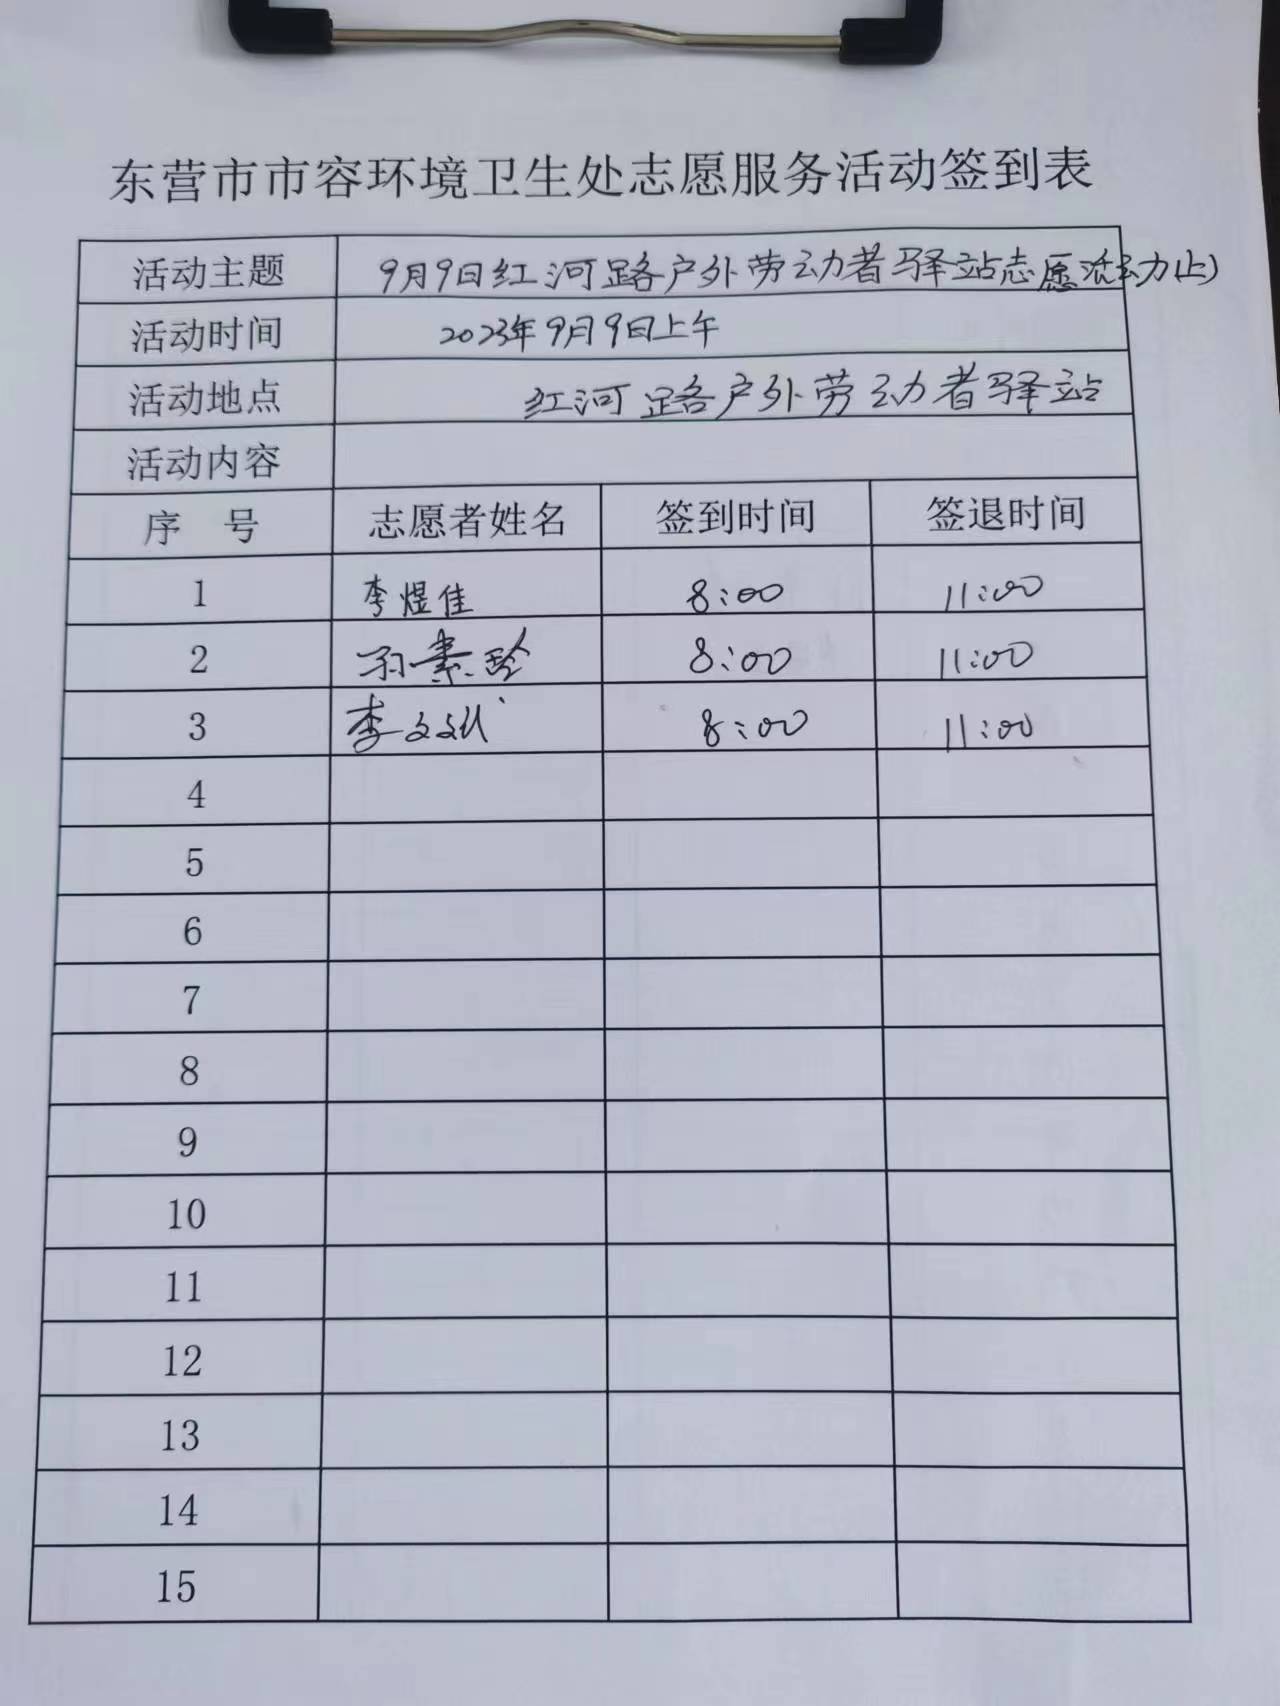 东营市市容环境卫生处志愿服务活动签到表
活动主题 9月9日红河路户外劳动者驿站志愿活动(上)
活动时间 2023年9月9日上午
活动地点 红河路户外劳动者驿站
活动内容
序 号 志愿者姓名 签到时间 签退时间
1 李煜佳 8:00 11:00
2 孙素玲 8:00 11:00
3 李文斌 8:00 11:00
4
5
6
7
8
9
10
11
12
13
14
15